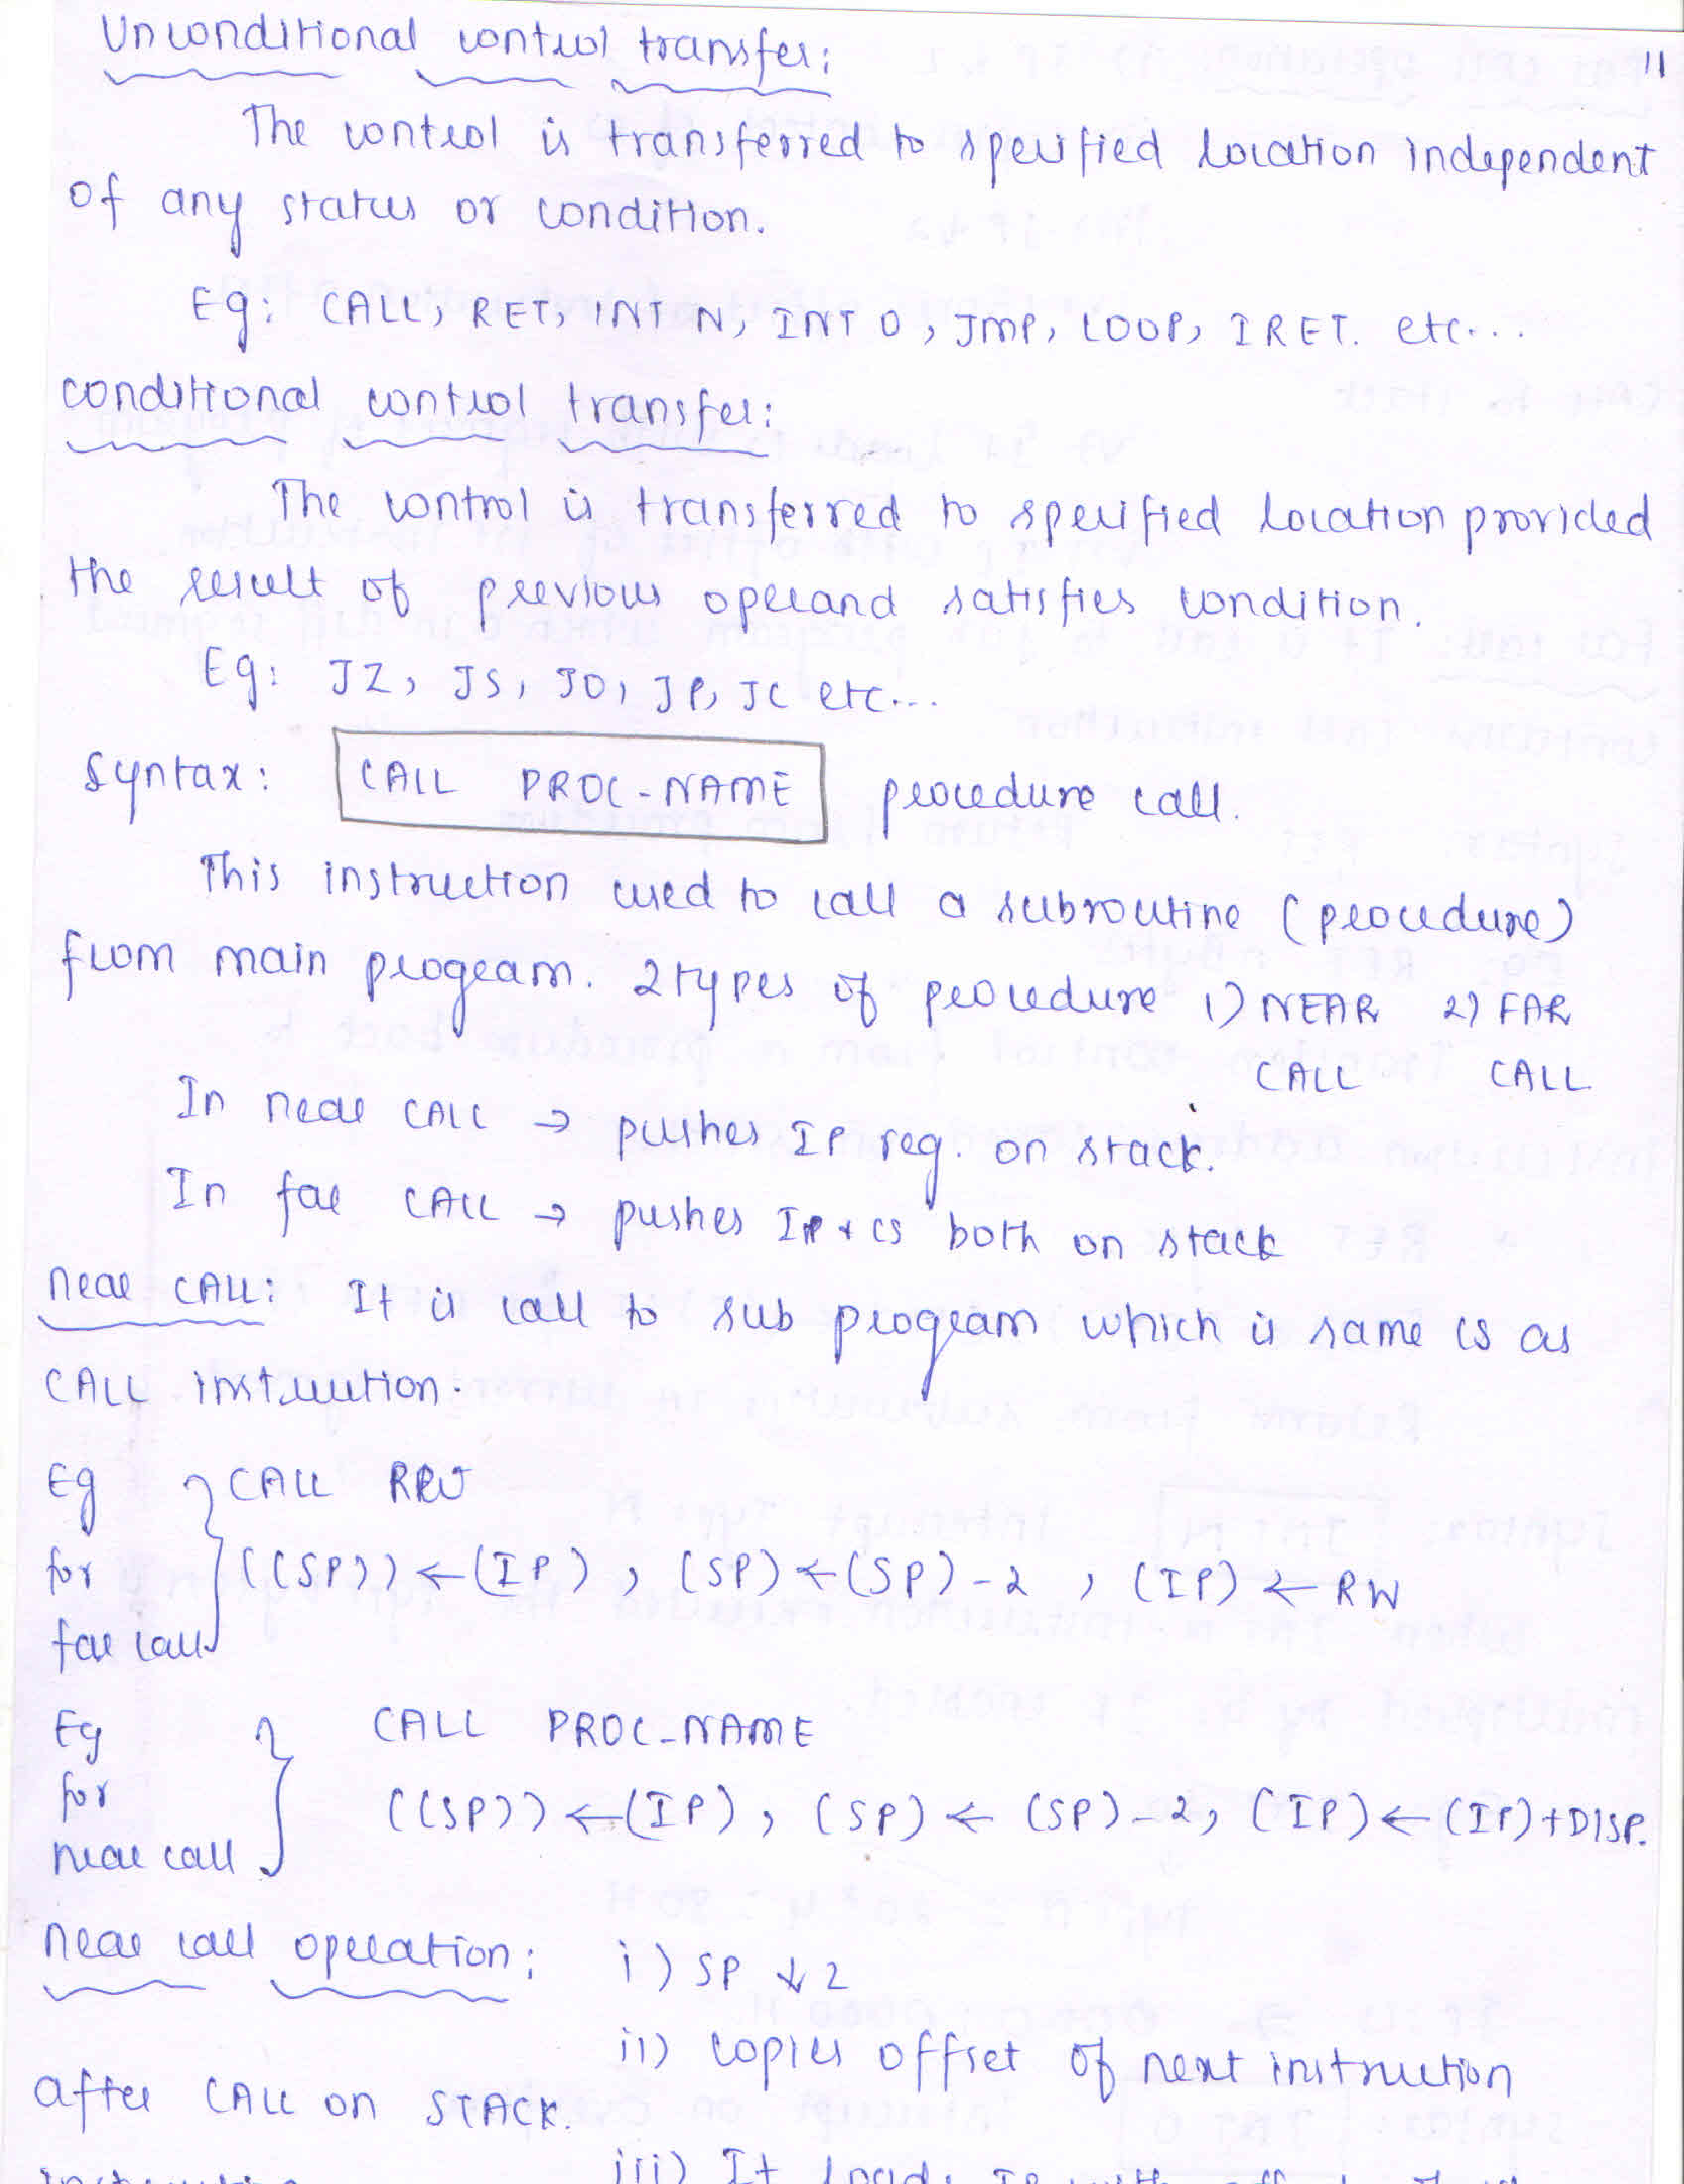 Unconditional control transfer:
11
The control is transferred to specified location independent
of any status or condition.
Eg: CALL, RET, INT N, INT O, JMP, LOOP, IRET. etc...
conditional control transfer:
The control is transferred to specified location provided
the result of previous operand satisfies condition.
Eg: JZ, JS, JO, JP, JC etc...
Syntax: CALL PROC-NAME procedure call.
This instruction used to call a subroutine (procedure)
from main program. 2 types of procedure 1) NEAR 2) FAR
CALL CALL
In near CALL → pushes IP reg. on stack.
In far CALL → pushes IP + CS both on stack
Near CALL: It is call to sub program which is same CS as
CALL instruction.
Eg CALL
for ((SP)) ← (IP), (SP) ← (SP) - 2, (IP) ← RW
far call
Eg CALL PROC-NAME
for ((SP)) ← (IP), (SP) ← (SP) - 2, (IP) ← (IP) + DISP.
near call
Near call operation: i) SP ↓ 2
ii) copies offset of next instruction
after CALL on STACK.
iii) It loads IP with